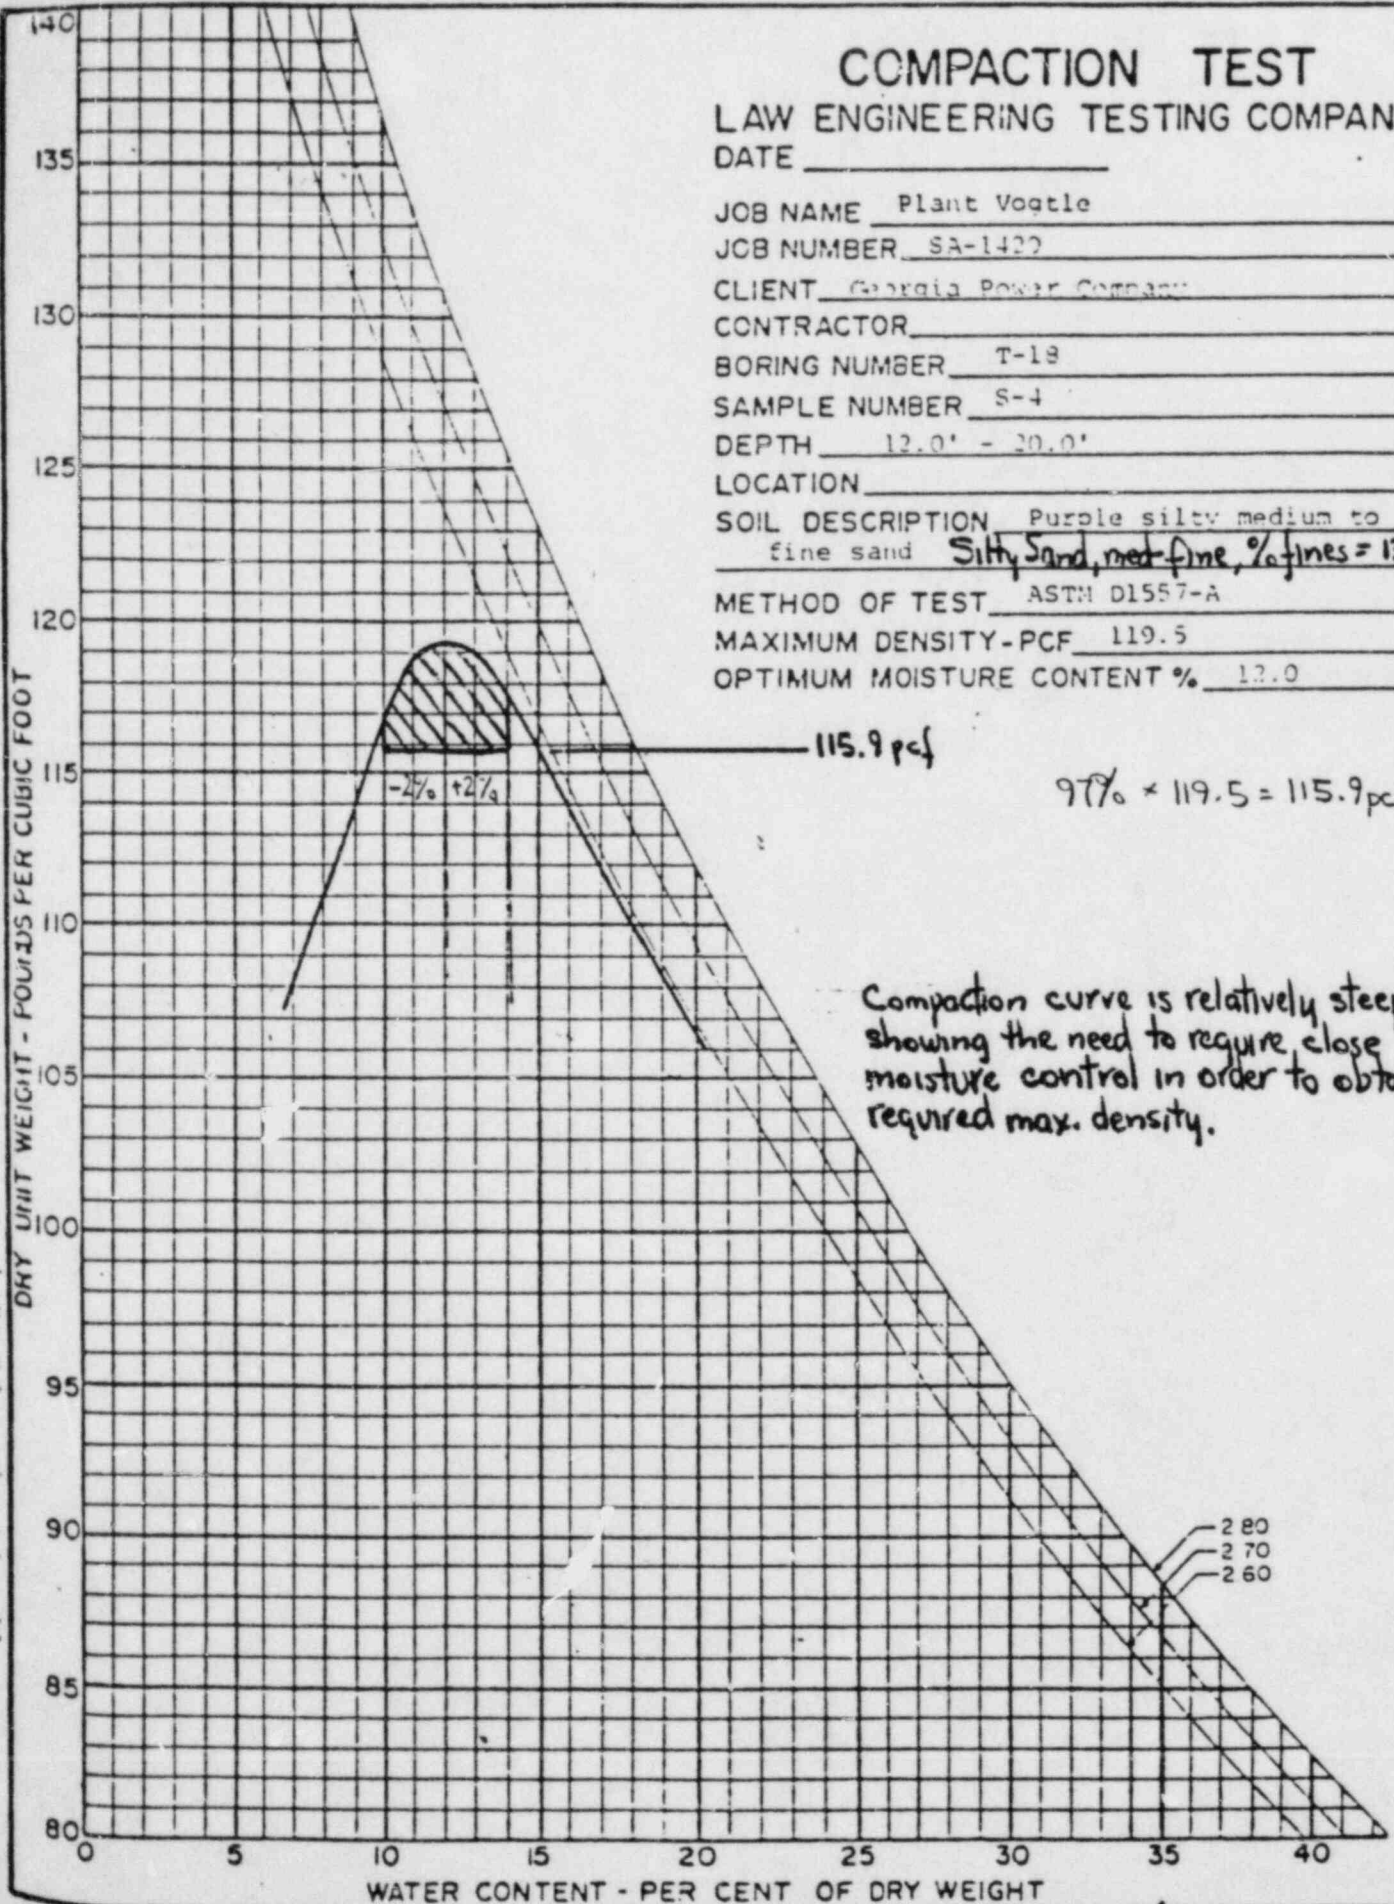 COMPACTION TEST
LAW ENGINEERING TESTING COMPAN
DATE
JOB NAME Plant Vogtle
JOB NUMBER SA-1422
CLIENT Georgia Power Company
CONTRACTOR
BORING NUMBER T-18
SAMPLE NUMBER S-4
DEPTH 12.0' - 20.0'
LOCATION
SOIL DESCRIPTION Purple silty medium to
fine sand Silty Sand, med-fine, % fines = 1
METHOD OF TEST ASTM D1557-A
MAXIMUM DENSITY-PCF 119.5
OPTIMUM MOISTURE CONTENT % 12.0
115.9 pcf
97% × 119.5 = 115.9 pc
-2% +2%
Compaction curve is relatively steep
showing the need to require close
moisture control in order to obta
required max. density.
DRY UNIT WEIGHT - POUNDS PER CUBIC FOOT
140
135
130
125
120
115
110
105
100
95
90
85
80
2 80
2 70
2 60
0 5 10 15 20 25 30 35 40
WATER CONTENT - PER CENT OF DRY WEIGHT